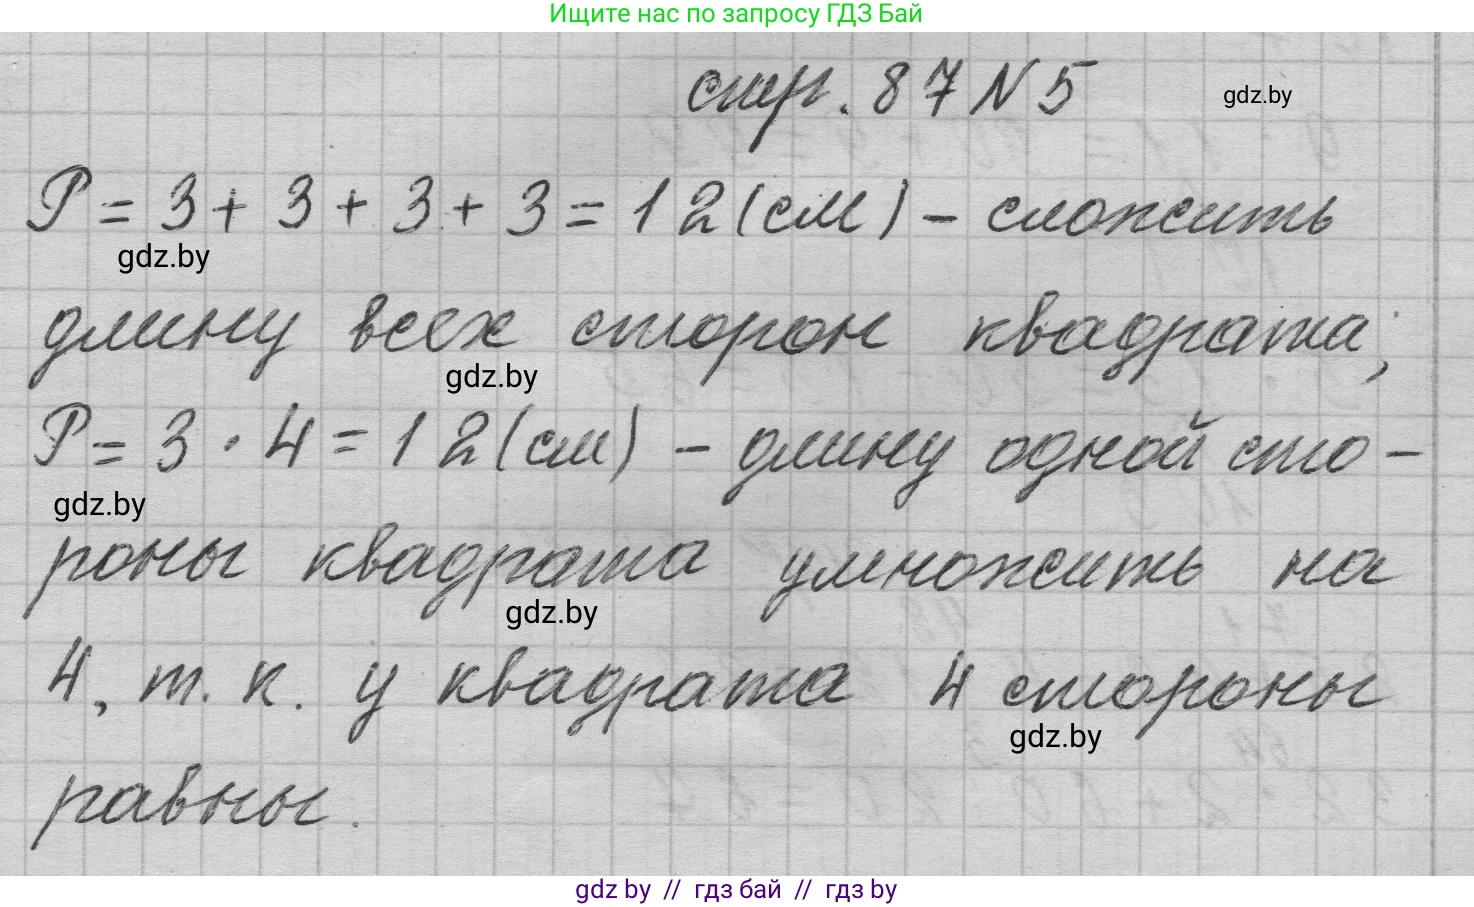 Ищите нас по запросу ГДЗ Бай
стр. 87 N 5
gdz.by
P = 3 + 3 + 3 + 3 = 12 (см) – сложить
gdz.by
длину всех сторон квадрата;
gdz.by
P = 3 · 4 = 12 (см) – длину одной сто-
gdz.by
роны квадрата умножить на
gdz.by
4, т. к. у квадрата 4 стороны
gdz.by
равны.
gdz by // гдз бай // гдз by